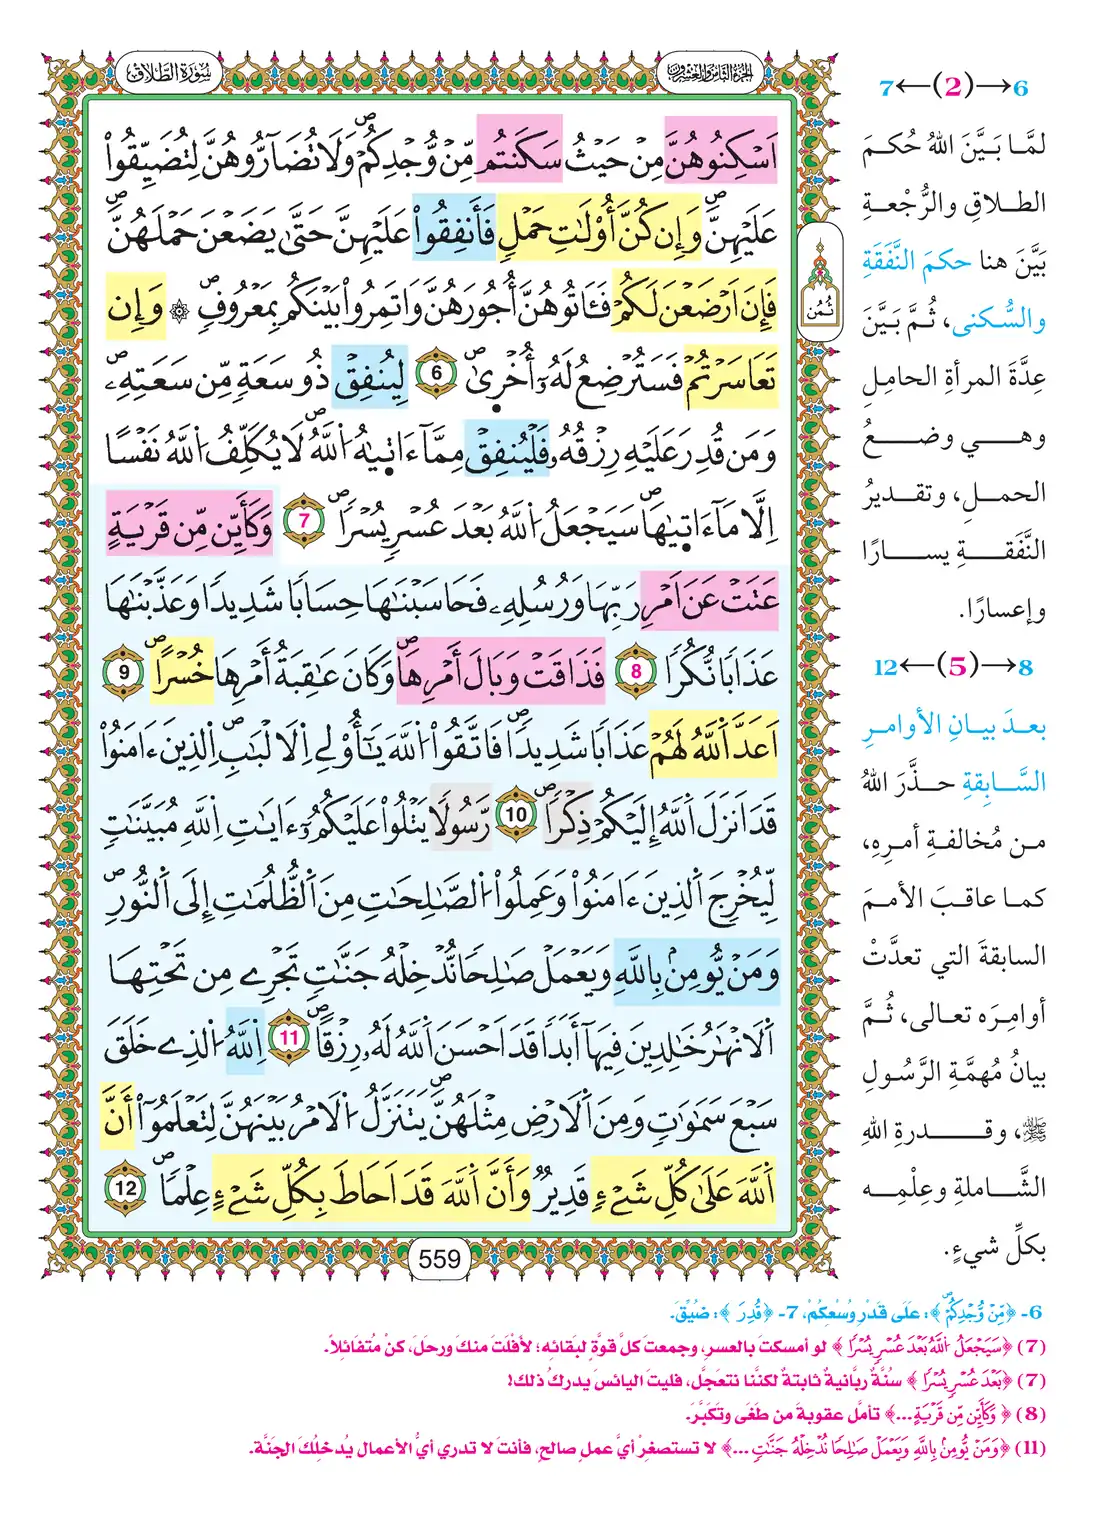 سُورَةُ الطَّلَاقِ
الجُزْءُ الثَّامِنُ وَالعِشْرُونَ
اَسْكِنُوهُنَّ مِنْ حَيْثُ سَكَنتُم مِّنْ وُّجْدِكُمْ وَلَا تُضَآرُّوهُنَّ لِتُضَيِّقُواْ
عَلَيْهِنَّ وَإِن كُنَّ أُوْلَٰتِ حَمْلٍ فَأَنفِقُواْ عَلَيْهِنَّ حَتَّىٰ يَضَعْنَ حَمْلَهُنَّ
فَإِنَ اَرْضَعْنَ لَكُمْ فَـَٔاتُوهُنَّ أُجُورَهُنَّ وَاتَمِرُواْ بَيْنَكُم بِمَعْرُوفٍ ۞ وَإِن
تَعَاسَرْتُمْ فَسَتُرْضِعُ لَهُۥٓ أُخْر۪ىٰ 6 لِيُنفِقْ ذُو سَعَةٍ مِّن سَعَتِهِۦ
وَمَن قُدِرَ عَلَيْهِ رِزْقُهُۥ فَلْيُنفِقْ مِمَّآ ءَات۪يٰهُ اُ۬للَّهُ لَا يُكَلِّفُ اُ۬للَّهُ نَفْسًا
اِلَّا مَآ ءَات۪يٰهَا سَيَجْعَلُ اُ۬للَّهُ بَعْدَ عُسْرٍ يُسْرًا 7 وَكَأَيِّن مِّن قَرْيَةٍ
عَتَتْ عَنَ اَمْرِ رَبِّهَا وَرُسُلِهِۦ فَحَاسَبْنَٰهَا حِسَابًا شَدِيدًا وَعَذَّبْنَٰهَا
عَذَابًا نُّكُرًا 8 فَذَاقَتْ وَبَالَ أَمْرِهَا وَكَانَ عَٰقِبَةُ أَمْرِهَا خُسْرًا 9
اَعَدَّ اَ۬للَّهُ لَهُمْ عَذَابًا شَدِيدًا فَاتَّقُواْ اُ۬للَّهَ يَٰٓأُوْلِے اِ۬لَالْبَٰبِ اِ۬لذِينَ ءَامَنُواْ
قَدَ اَنزَلَ اَ۬للَّهُ إِلَيْكُمْ ذِكْرًا 10 رَّسُولًا يَتْلُواْ عَلَيْكُمُۥٓ ءَايَٰتِ اِ۬للَّهِ مُبَيَّنَٰتٍ
لِّيُخْرِجَ اَ۬لذِينَ ءَامَنُواْ وَعَمِلُواْ اُ۬لصَّٰلِحَٰتِ مِنَ اَ۬لظُّلُمَٰتِ إِلَى اَ۬لنُّورِ
وَمَنْ يُّومِنۢ بِاللَّهِ وَيَعْمَلْ صَٰلِحًا نُّدْخِلْهُ جَنَّٰتٍ تَجْرِے مِن تَحْتِهَا
اَ۬لَانْهَٰرُ خَٰلِدِينَ فِيهَآ أَبَدًا قَدَ اَحْسَنَ اَ۬للَّهُ لَهُۥ رِزْقًا 11 اِ۬للَّهُ اُ۬لذِے خَلَقَ
سَبْعَ سَمَٰوَٰتٍ وَمِنَ اَ۬لَارْضِ مِثْلَهُنَّ يَتَنَزَّلُ اُ۬لَامْرُ بَيْنَهُنَّ لِتَعْلَمُوٓاْ أَنَّ
اَ۬للَّهَ عَلَىٰ كُلِّ شَےْءٍ قَدِيرٌ وَأَنَّ اَ۬للَّهَ قَدَ اَحَاطَ بِكُلِّ شَےْءٍ عِلْمًا 12
ثُمُن
559
6→(2)←7
لمَّا بَيَّنَ اللهُ حُكمَ
الطلاقِ والرُّجْعةِ
بَيَّنَ هنا حكمَ النَّفَقَةِ
والسُّكنى، ثُمَّ بَيَّنَ
عِدَّةَ المرأةِ الحامِلِ
وهي وضعُ
الحملِ، وتقديرُ
النَّفَقةِ يسارًا
وإعسارًا.
8→(5)←12
بعدَ بيانِ الأوامرِ
السَّابِقةِ حذَّرَ اللهُ
من مُخالفةِ أمرِهِ،
كما عاقبَ الأممَ
السابقةَ التي تعدَّتْ
أوامِرَه تعالى، ثُمَّ
بيانُ مُهمَّةِ الرَّسُولِ
ﷺ، وقدرةِ اللهِ
الشَّاملةِ وعِلْمِه
بكلِّ شيءٍ.
6- ﴿مِّنْ وُّجْدِكُمْ﴾: عَلَى قَدْرِ وُسْعِكُمْ، 7- ﴿قُدِرَ﴾: ضُيِّقَ.
(7) ﴿سَيَجْعَلُ اُ۬للَّهُ بَعْدَ عُسْرٍ يُسْرًا﴾ لو أمسكتَ بالعسرِ، وجمعتَ كلَّ قوَّةٍ لبقائه؛ لأفْلَتَ منكَ ورحلَ، كنْ مُتفَائلاً.
(7) ﴿بَعْدَ عُسْرٍ يُسْرًا﴾ سُنَّةٌ ربَّانيةٌ ثابتةٌ لكنَّنا نتعجَّل، فليتَ اليائسَ يدركُ ذلك!
(8) ﴿وَكَأَيِّن مِّن قَرْيَةٍ...﴾ تأمَّل عقوبةَ من طغَى وتكبَّرَ.
(11) ﴿وَمَنْ يُّومِنۢ بِاللَّهِ وَيَعْمَلْ صَٰلِحًا نُّدْخِلْهُ جَنَّٰتٍ...﴾ لا تستصغرْ أيَّ عملٍ صالحٍ، فأنتَ لا تدري أيُّ الأعمال يُدخلُكَ الجَنَّةَ.